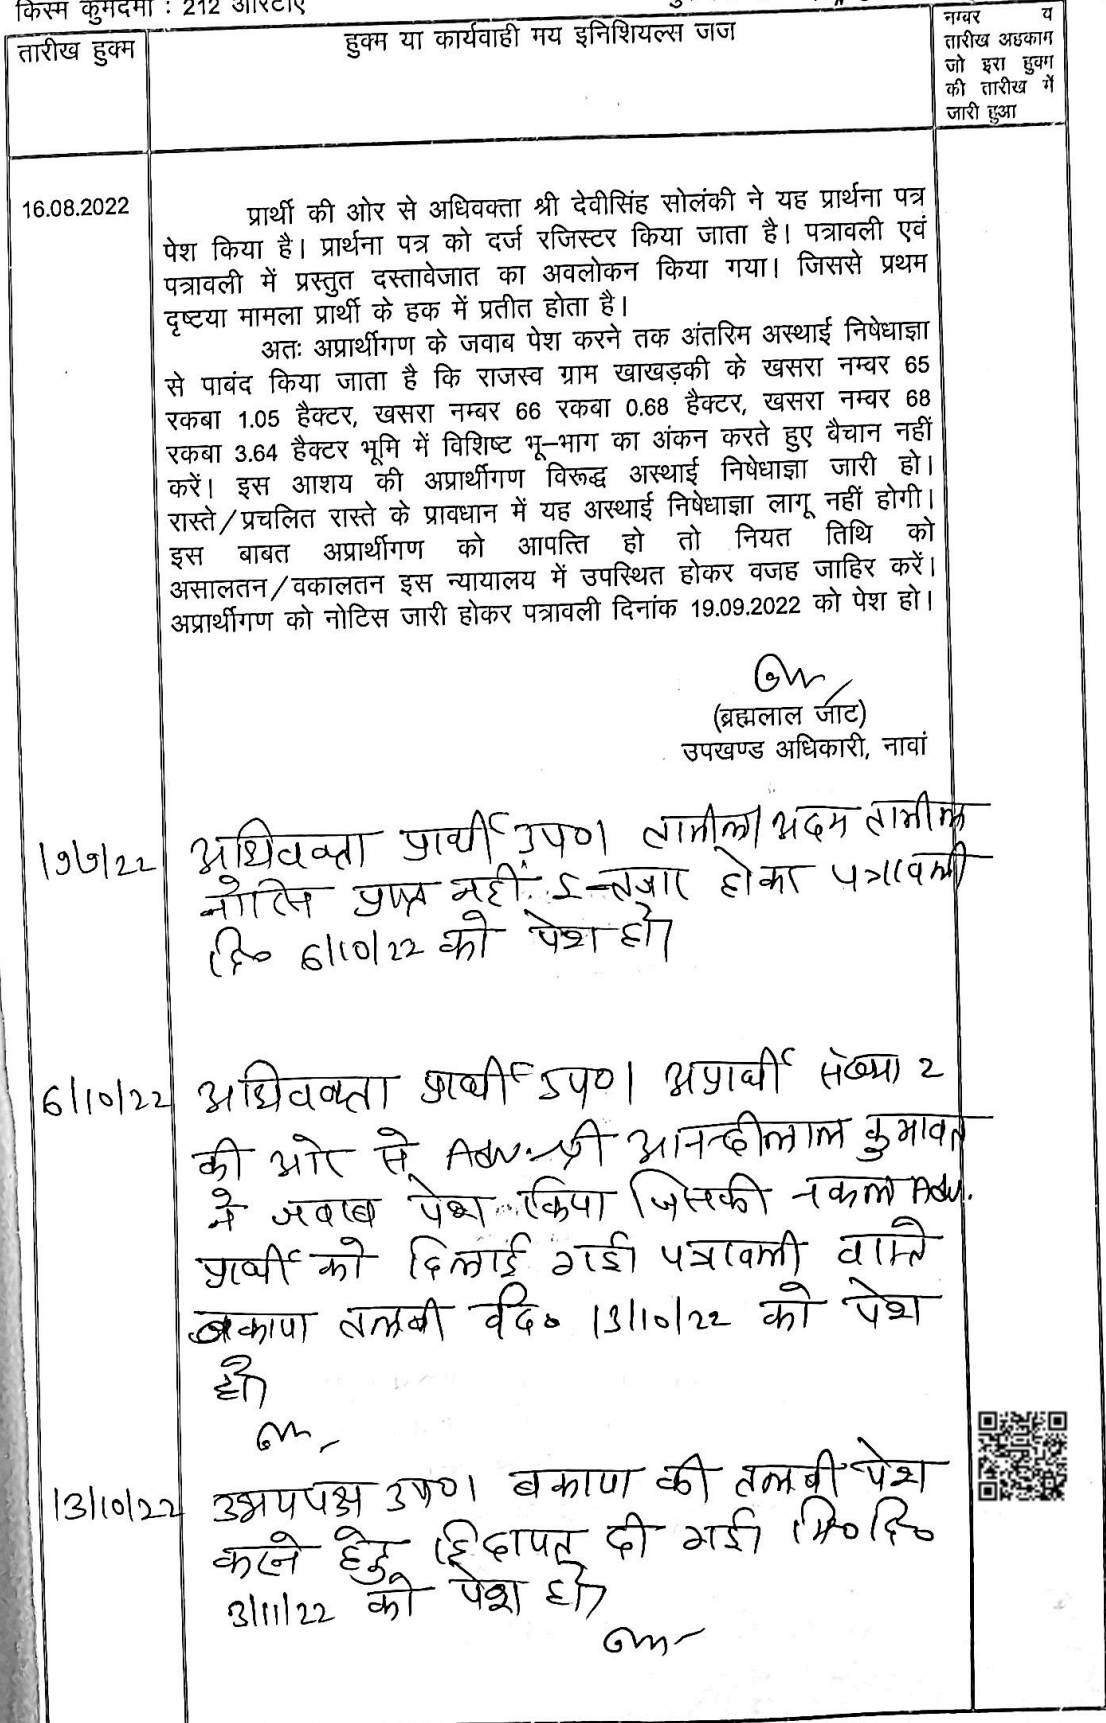 किस्म कुमदमा : 212 आरटीए
तारीख हुक्म
हुक्म या कार्यवाही मय इनिशियल्स जज
नम्बर व
तारीख अहकाम
जो इस हुक्म
की तारीख में
जारी हुआ
16.08.2022
प्रार्थी की ओर से अधिवक्ता श्री देवीसिंह सोलंकी ने यह प्रार्थना पत्र
पेश किया है। प्रार्थना पत्र को दर्ज रजिस्टर किया जाता है। पत्रावली एवं
पत्रावली में प्रस्तुत दस्तावेजात का अवलोकन किया गया। जिससे प्रथम
दृष्टया मामला प्रार्थी के हक में प्रतीत होता है।
अतः अप्रार्थीगण के जवाब पेश करने तक अंतरिम अस्थाई निषेधाज्ञा
से पाबंद किया जाता है कि राजस्व ग्राम खाखड़की के खसरा नम्बर 65
रकबा 1.05 हैक्टर, खसरा नम्बर 66 रकबा 0.68 हैक्टर, खसरा नम्बर 68
रकबा 3.64 हैक्टर भूमि में विशिष्ट भू–भाग का अंकन करते हुए बैचान नहीं
करें। इस आशय की अप्रार्थीगण विरूद्ध अस्थाई निषेधाज्ञा जारी हो।
रास्ते/प्रचलित रास्ते के प्रावधान में यह अस्थाई निषेधाज्ञा लागू नहीं होगी।
इस बाबत अप्रार्थीगण को आपत्ति हो तो नियत तिथि को
असालतन/वकालतन इस न्यायालय में उपस्थित होकर वजह जाहिर करें।
अप्रार्थीगण को नोटिस जारी होकर पत्रावली दिनांक 19.09.2022 को पेश हो।
(ब्रह्मलाल जाट)
उपखण्ड अधिकारी, नावां
19/9/22 अधिवक्ता प्रार्थी उप0। तामील/अदम तामील
नोटिस प्राप्त नहीं. इन्तजार होकर पत्रावली
दि० 6/10/22 को पेश हो।
6/10/22 अधिवक्ता प्रार्थी उप0। अप्रार्थी संख्या 2
की ओर से Adv. श्री आनन्दीलाल कुमावत
ने जवाब पेश किया जिसकी नकल Adv.
प्रार्थी को दिलाई गई। पत्रावली वास्ते
बकाया तलबी दि० 13/10/22 को पेश
हो।
13/10/22 उभयपक्ष उप0। बकाया की तलबी पेश
करने हेतु हिदायत दी गई। मि० दि०
3/11/22 को पेश हो।